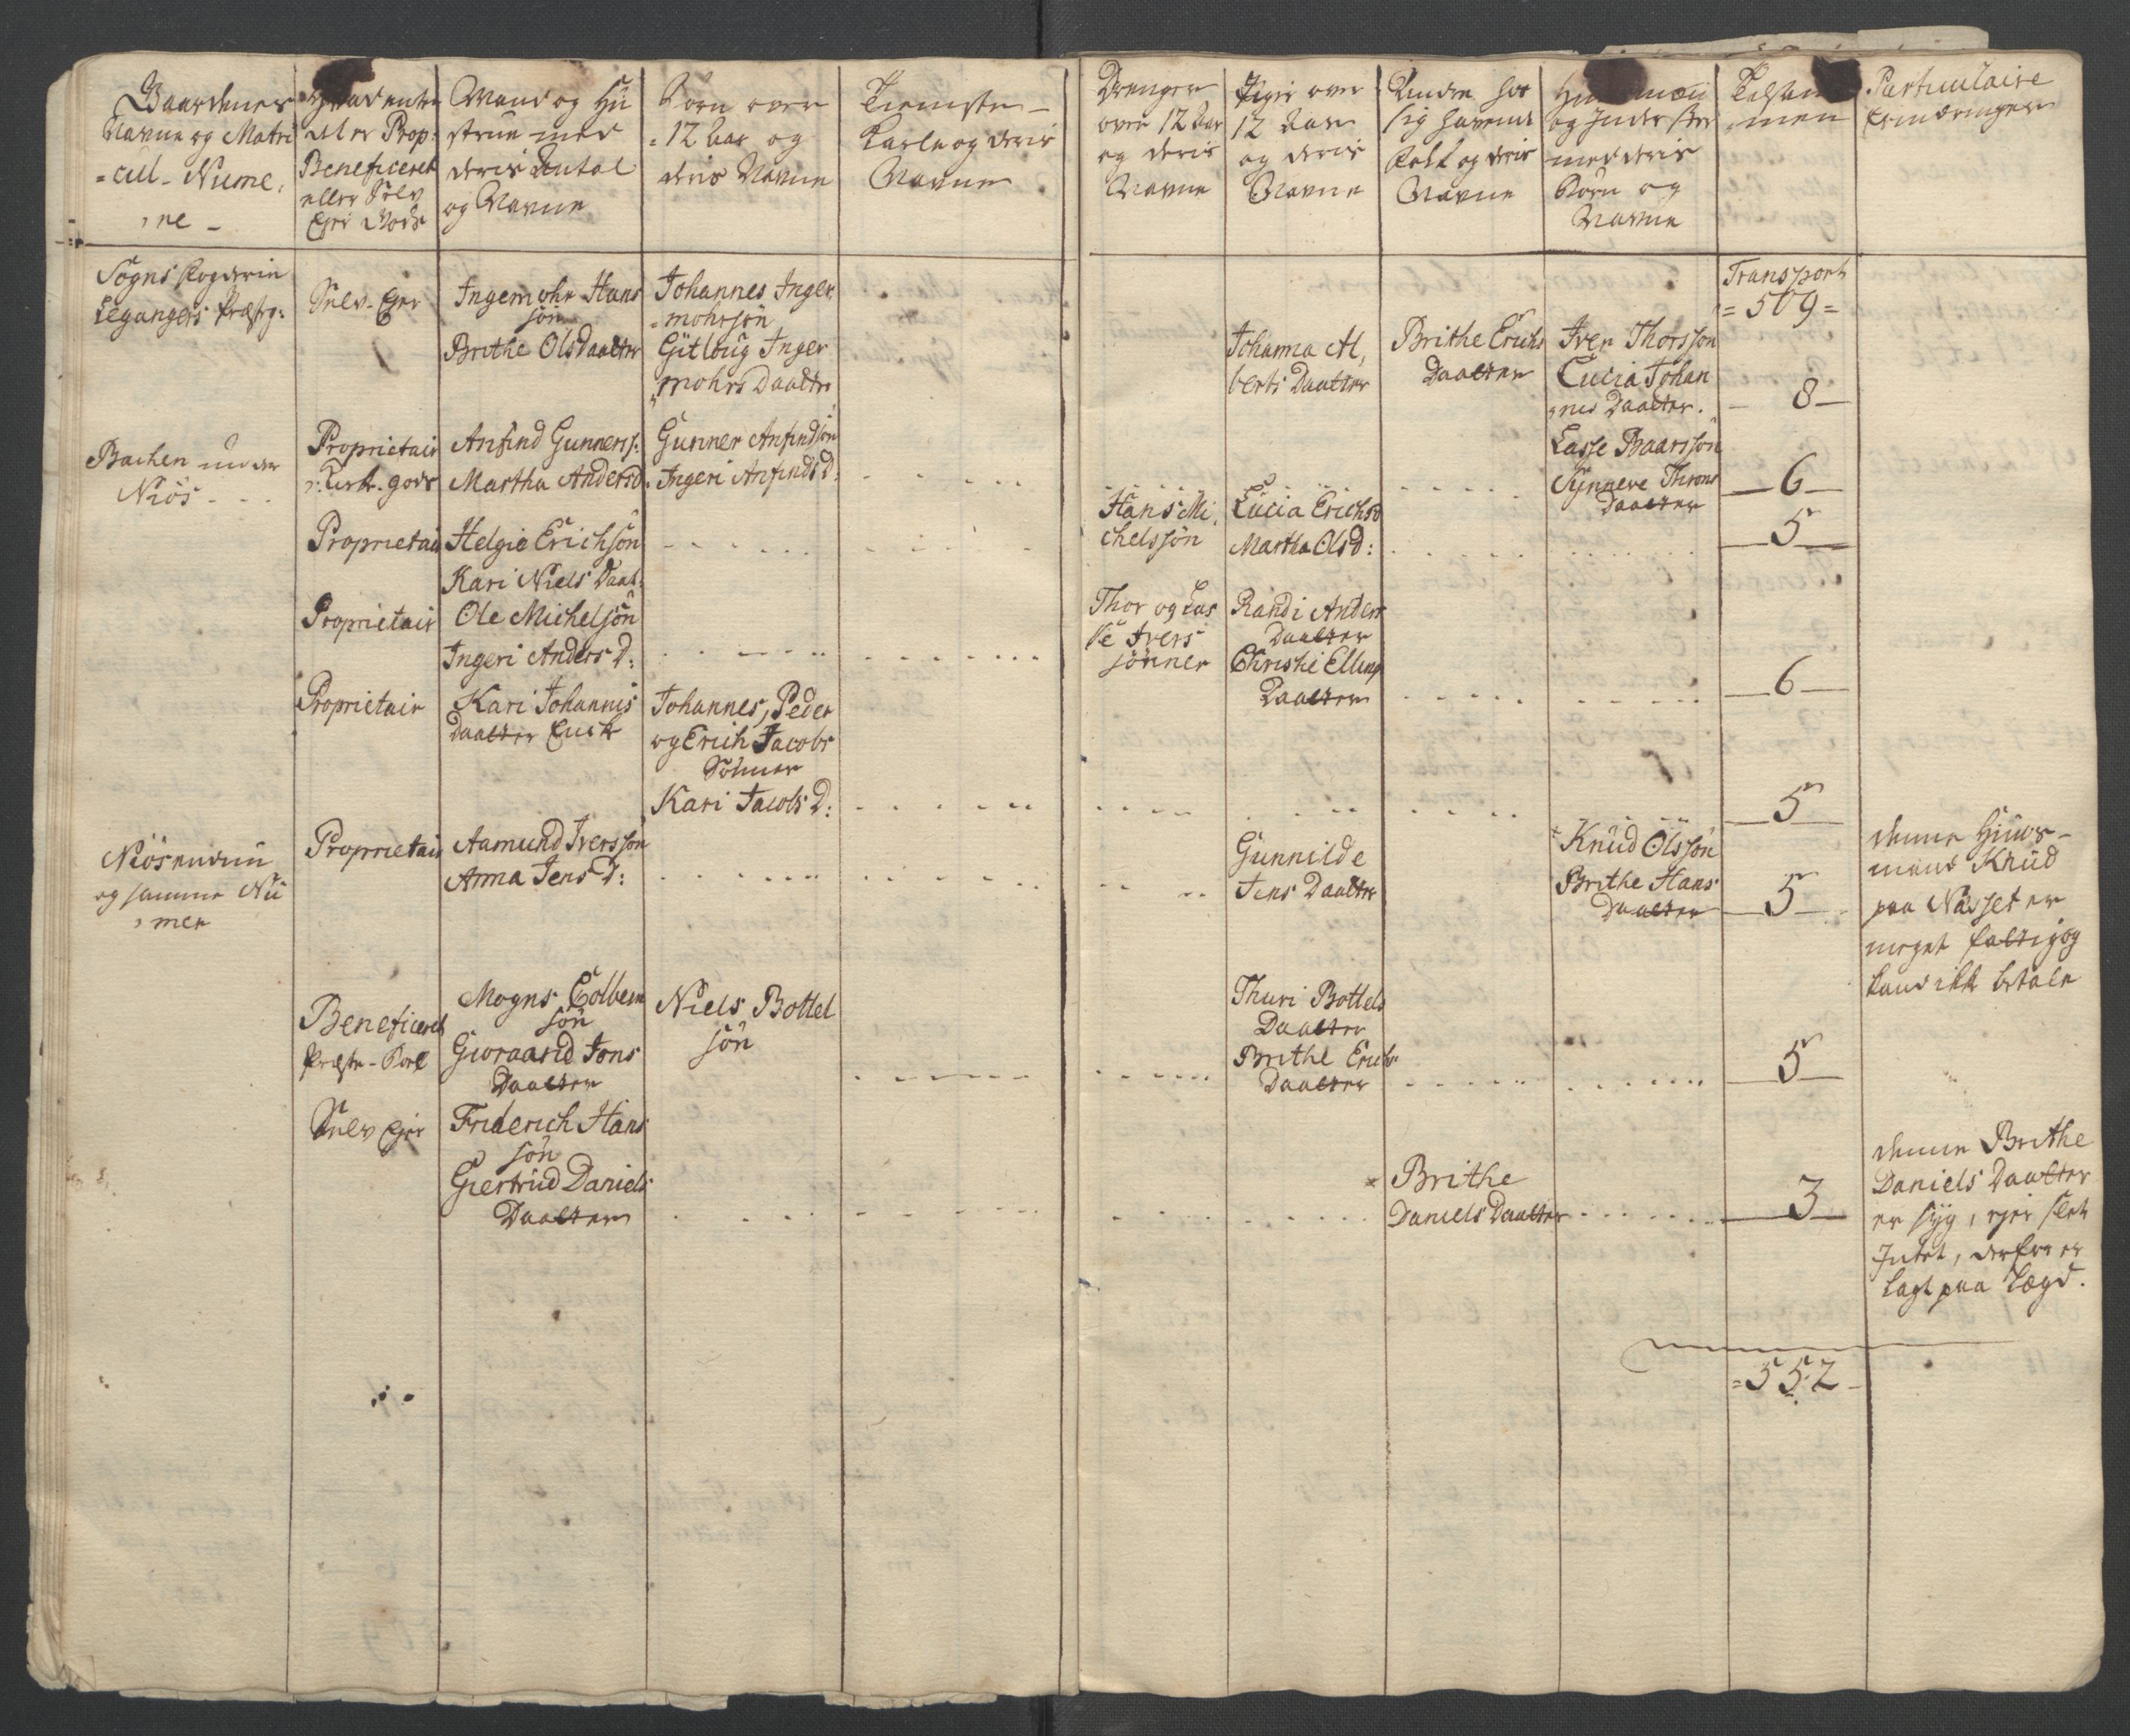 Gaardenes
Navne og Matri
=cul- Nume,
,re -
eller Prop:
Beneficeret
eller Selv
Ejer Gods
Mand og Hu
strue med
deris Antal
og Navne
Børn over
12 Aar og
deris Navne
Tieneste-
Karle og deris
Navne
Drenge
over 12 Aar
og deris
Navne
Piger over
12 Aar
og deris
Navne
Andre hos
sig havende
Folk og deris
Navne
og Inderster
med deris
Børn og
Navne
men
Particulaire
Erindringer
Sogns Kogderie
Leganger Præstg:
Selv-Ejer
Ingemohr Hans
søn
Brithe Olsdaatter
Johannes Inge,
=mohrsøn
Gitloug Inge
,mohrs Daatter
Johanna Al,
berts Daatter
Brithe Erichs
Daatter
Iver Thorsson
Lucia Johan
,nes Daatter.
Transport
=509=
8
Bachen under
Niøs - - -
Proprietair
Kirk. gods
Anfind Gunners:
Martha Andersd:
Gunner Anfindsøn
Ingeri Anfinds D:
Lasse Baarsson
Synneve Throns
Daatter
6
Proprietair
Helgie Erichsøn
Kari Niels Daat:
Hans Mi,
chelssøn
Lucia Erichsd
Martha Ols D:
5
Proprietair
Ole Michelsøn
Ingeri Anders D:
Thor og Las
se Ivers
sønner
Randi Anders
Daatter
Christie Ellings
Daatter
6
Proprietair
Kari Johannis
Daatter Enke
Johannes, Peder
og Erich Jacobs
Sønner
Kari Jacobs D:
5
Niøs
og samme Nu
,mer
Proprietair
Aamund Iversson
Anna Jens D:
Gunnilde
Jens Daatter
Knud Olsson
Brithe Hans
Daatter
5
denne Huus-
mand Knud
paa Nasset er
meget fattig og
kand ikke betale
Beneficeret
Præste-Boel
Mogns Colbein
søn
Gioraand Jons
Daatter
Niels Bottel
søn
Thuri Bottels
Daatter
Brithe Erichs
Daatter
5
Selv Ejer
Friderich Hans
søn
Giertrud Daniels
Daatter
Brithe
Daniels Daatter
3
denne Brithe
Daniels Daatter
er syg, ejer slet
Intet, derfor er
lagt paa Lægd.
=552-